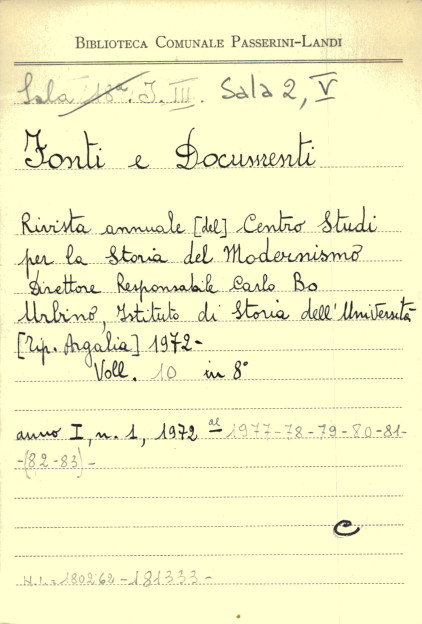 BIBLIOTECA COMUNALE PASSERINI-LANDI
Sala 18ª. I. III. Sala 2, V
Fonti e Documenti
Rivista annuale [del] Centro Studi
per la Storia del Modernismo
Direttore Responsabile Carlo Bo
Urbino, Istituto di Storia dell'Università
[Tip. Argalia] 1972-
Voll. 10 in 8°
anno I, n. 1, 1972 al 1977-78-79-80-81-
-(82-83)-
N.I.= 180262-181333-
C